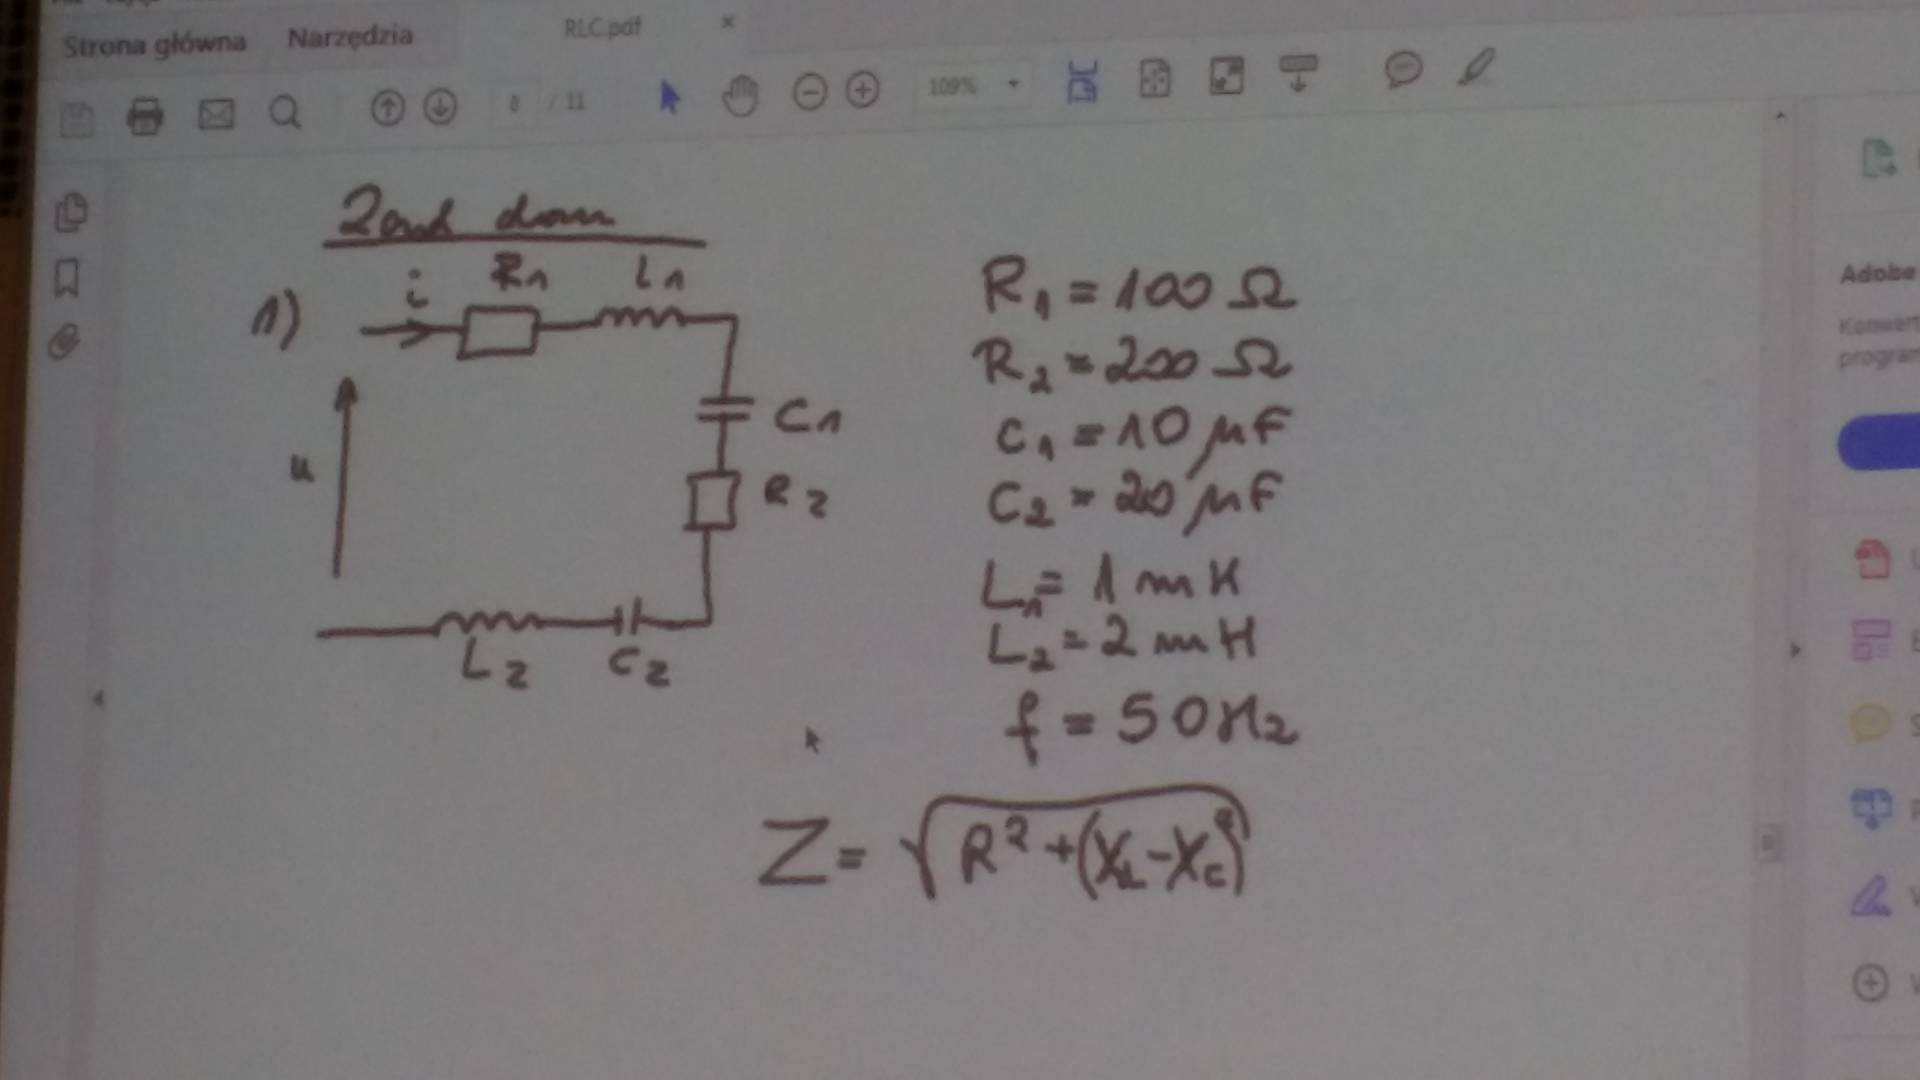 Strona główna Narzędzia RLC.pdf ×
8 / 11 109%
Zad dom
1) i R1 L1
u
C1
R2
L2 C2
R1 = 100 Ω
R2 = 200 Ω
C1 = 10 μF
C2 = 20 μF
L1 = 1 mH
L2 = 2 mH
f = 50 Hz
Z = √R² + (XL - XC)²
Adobe
Konwert
program